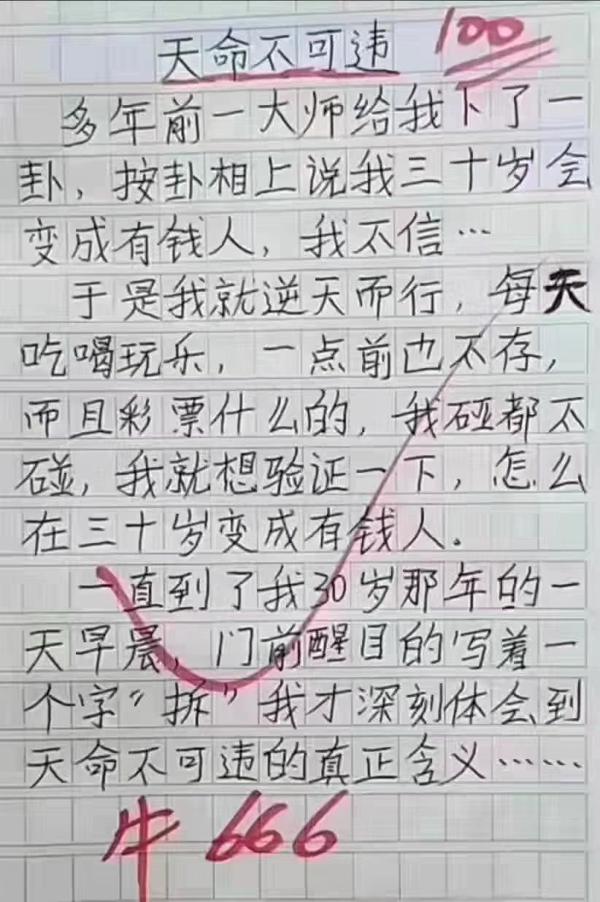 天命不可违 100
多年前一大师给我下了一
卦，按卦相上说我三十岁会
变成有钱人，我不信…
于是我就逆天而行，每天
吃喝玩乐，一点前也不存，
而且彩票什么的，我碰都不
碰，我就想验证一下，怎么
在三十岁变成有钱人。
一直到了我30岁那年的一
天早晨，门前醒目的写着一
个字“拆”我才深刻体会到
天命不可违的真正含义……
牛 666